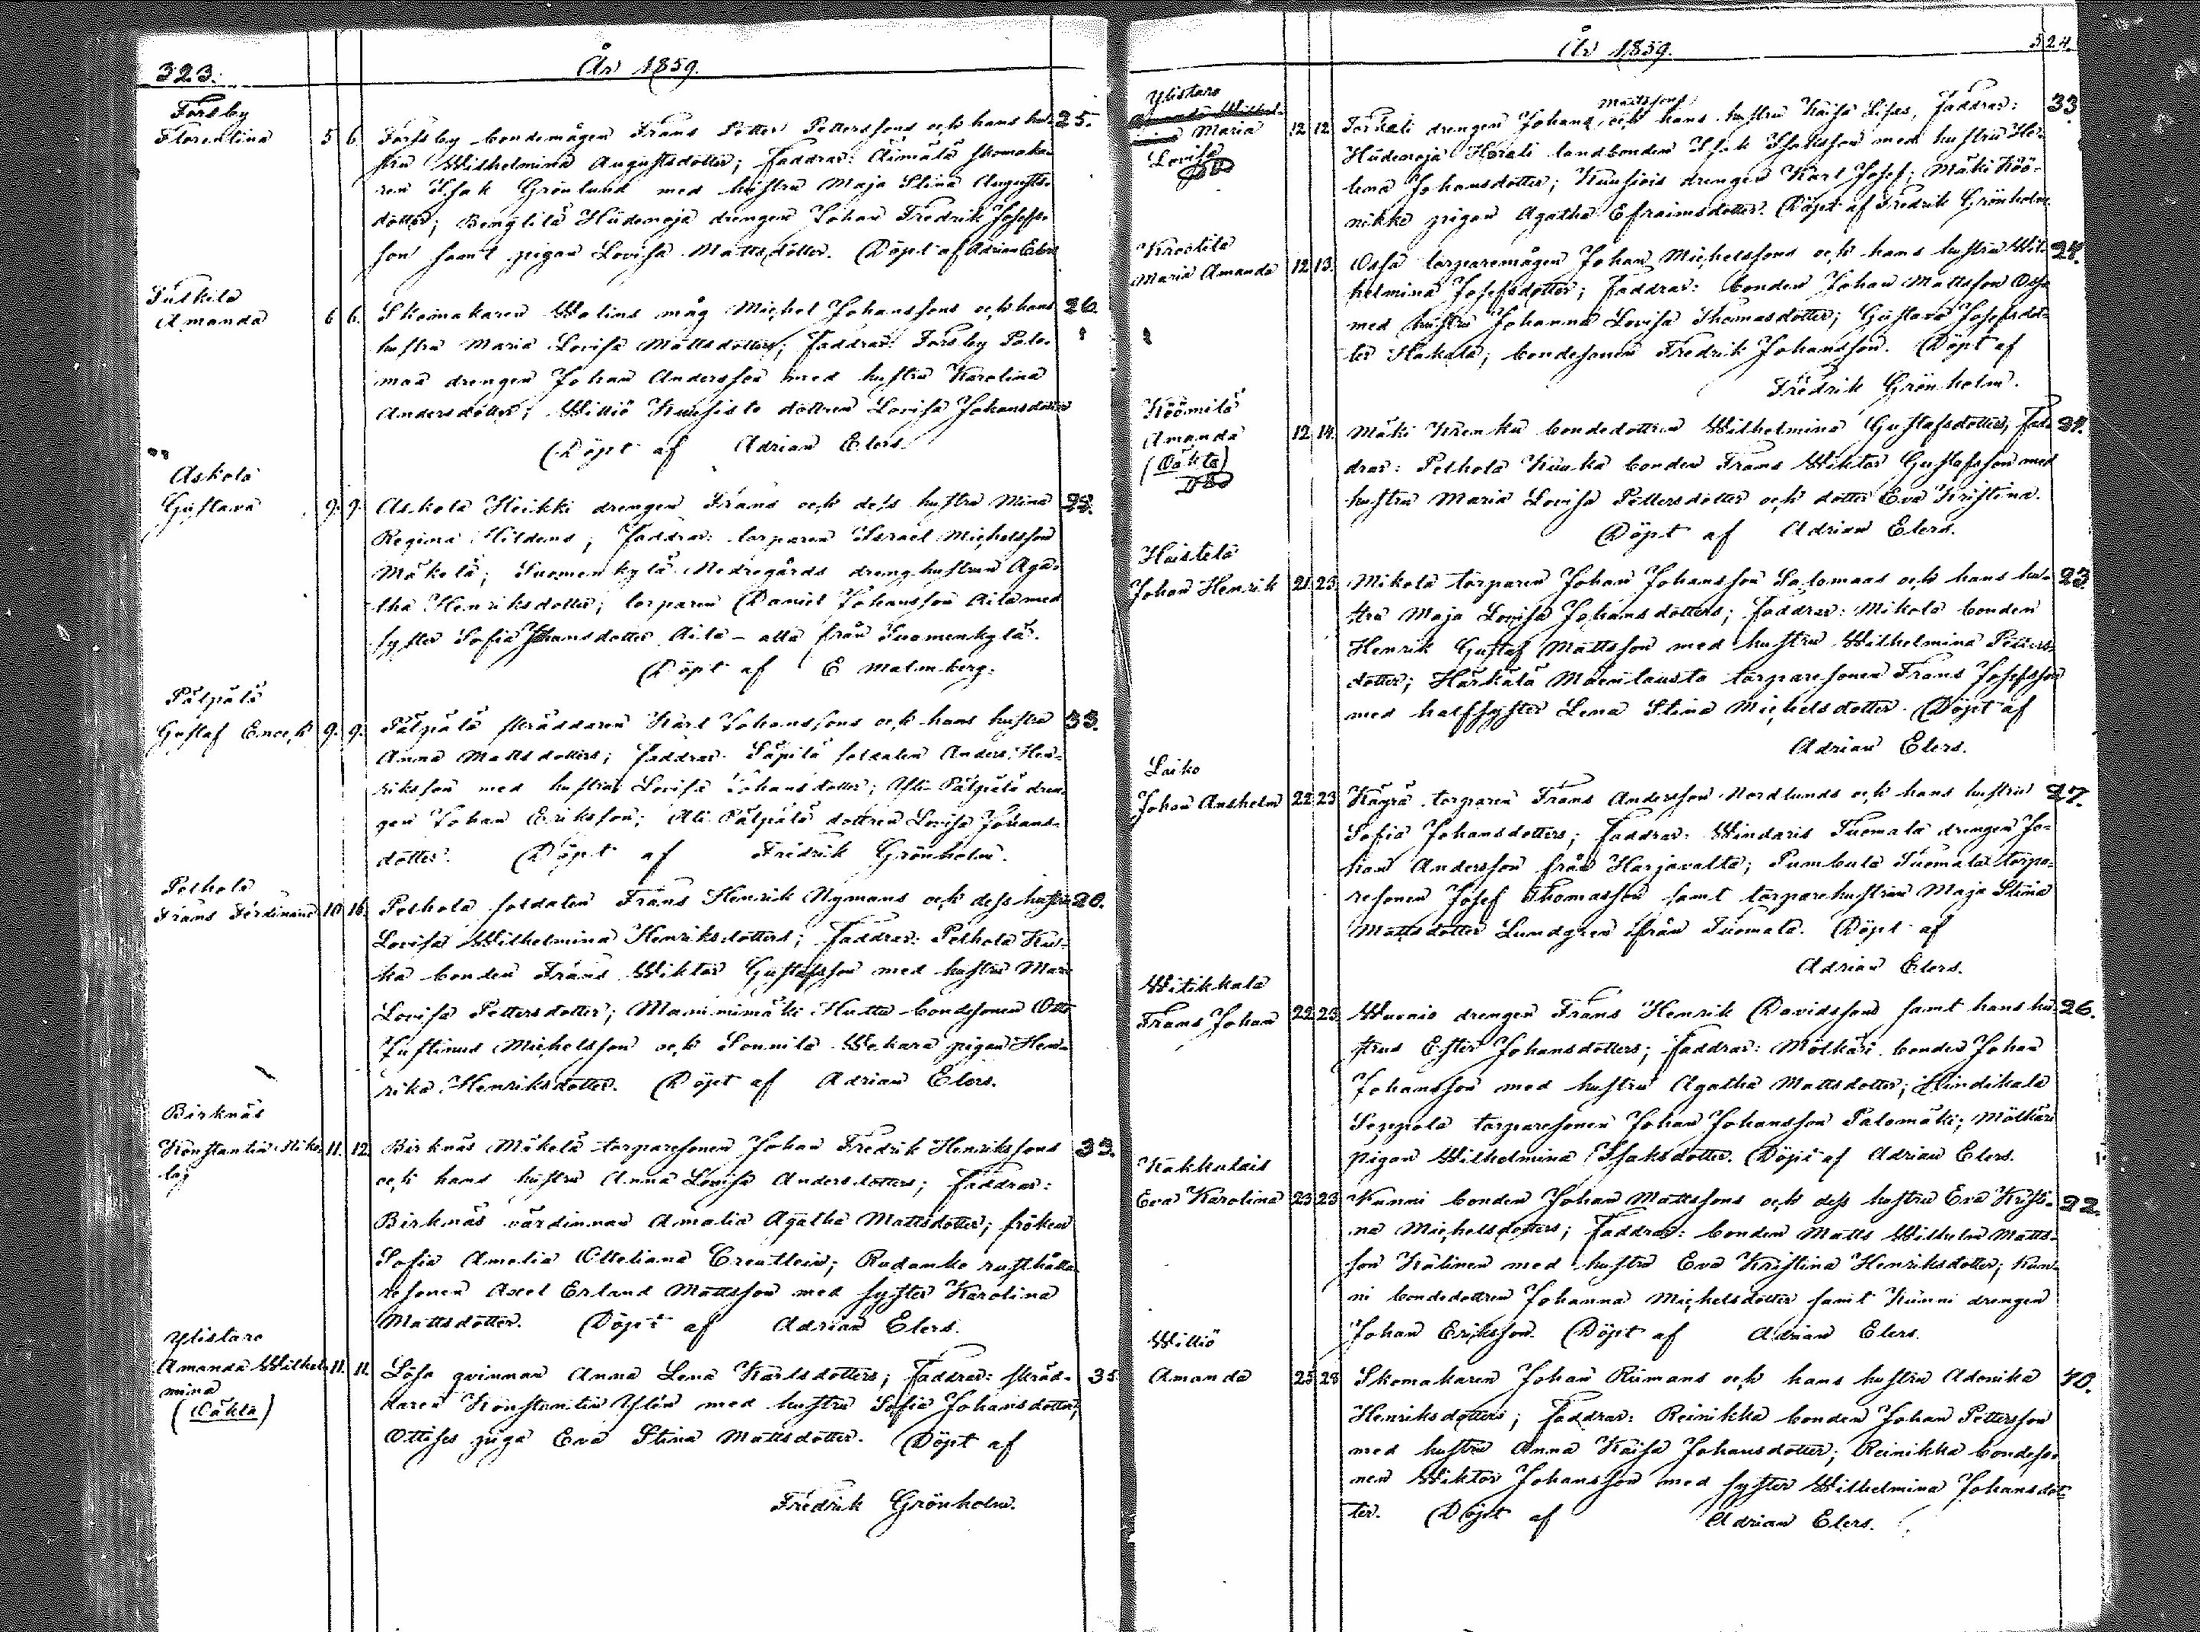 323.
År 1859.
Forsby
Florentina 5 6. Forsby bondemågen Frans Petter Petterssons och hans hu- 25.
stru Wilhelmina Augustsdotter; Faddrar: Äimälä skomaka-
ren Isak Grönlund med hustru Maja Stina Augusts-
dotter; Bengtilä Hiidenoja drengen Johan Fredrik Josefs-
son samt pigan Lovisa Mattsdotter. Döpt af Adrian Elers
Tulkila
Amanda 6 6. Skomakaren Walins måg Michel Johanssons och hans 26.
hustru Maria Lovisa Mattsdotters; Faddrar: Forsby Palo-
maa drengen Johan Andersson med hustru Karolina
Andersdotter; Williö Kuusisto dottren Lovisa Johansdotter
Döpt af Adrian Elers.
Askola
Gustava 9. 9. Askola Heikki drengen Frans och dess hustru Mina
Regina Hildens; Faddrar: torparen Israel Michelsson
Mäkelä; Suomenkylä Nedregårds drenghustrun Aga-
tha Henriksdotter; torparen Daniel Johansson Aila med
syster Sofia Johansdotter Aila - alla från Suomenkylä.
Döpt af E Malmberg.
Pälpälä
Gustaf Enoch 9. 9. Pälpälä skräddaren Karl Johanssons och hans hustru 33.
Anna Mattsdotters; Faddrar: Säpilä soldaten Anders Hen-
riksson med hustru Lovisa Johansdotter; Yli Pälpälä dren-
gen Johan Eriksson; Ali Pälpälä dottren Lovisa Johans-
dotter. Döpt af Fredrik Grönholm.
Pelhola
Frans Ferdinand 10 16. Pelhola soldaten Frans Henrik Nymans och dess hustru 20.
Lovisa Wilhelmina Henriksdotters; Faddrar: Pelhola Kuu-
ka bonden Frans Wiktor Gustafsson med hustru Maria
Lovisa Pettersdotter; Maurinimäki Hutta bondesonen Otto
Justinus Michelsson och Sonnila Wekara pigan Hen-
rika Henriksdotter. Döpt af Adrian Elers.
Birknäs
Konstantin Niko- 11. 12. Birknäs Mäkelä torparesonen Johan Fredrik Henrikssons 33.
laj
och hans hustru Anna Lovisa Andersdotters; Faddrar:
Birknäs värdinnan Amalia Agatha Mattsdotter; fröken
Sofia Amelia Otteliana Creutlein; Rudanko rusthålla-
resonen Axel Erland Mattsson med syster Karolina
Mattsdotter. Döpt af Adrian Elers.
Ylistaro
Amanda Wilhel- 11. 11. Lösa qvinnan Anna Lena Karlsdotters; Faddrar: skräd- 35
mina
(Oäkta)
daren Konstantin Ylén med hustru Sofia Johansdotter;
Ottises piga Eva Stina Mattsdotter. Döpt af
Fredrik Grönholm.
År 1859.
324.
Ylistaro
Amanda Wilhel-
mina Maria 12 12. drengen Johans Mattssons och hans hustru Kaisa Lisas, Faddrar: 33
Lovisa
Hiidenoja Horali landbonden Isak Isaksson med hustru He-
lena Johansdotter; Kuusiois drengen Karl Josef; Mäki Köö-
nikkä pigan Agatha Efraimsdotter. Döpt af Fredrik Grönholm.
Krootila
Maria Amanda 12 13. Ossa torparemågen Johan Michelssons och hans hustru Wil-
helmina Josefsdotter; Faddrar: bonden Johan Mattsson Ossa
med hustru Johanna Lovisa Thomasdotter; Gustava Josefsdot-
ter Hakala; bondesonen Fredrik Johansson. Döpt af
Fredrik Grönholm.
Köömilä
Amanda 12 14. Mäki Krenku bondedottren Wilhelmina Gustafsdotter; Fad-
(Oäkta)
drar: Pelhola Kuuka bonden Frans Wiktor Gustafsson med
hustru Maria Lovisa Pettersdotter och dotter Eva Kristina.
Döpt af Adrian Elers.
Haistila
Johan Henrik 21 23. Mikola torparen Johan Johansson Salomaas och hans hu- 23
stru Maja Lovisa Johansdotters; Faddrar: Mikola bonden
Henrik Gustaf Mattsson med hustru Wilhelmina Petters-
dotter; Härkälä Maenlausta torparesonen Frans Josefsson
med halfsyster Lena Stina Michelsdotter. Döpt af
Adrian Elers.
Laiko
Johan Anshelm 22 23 Kägrä torparen Frans Andersson Nordlunds och hans hustru 27.
Sofia Johansdotters; Faddrar: Windaris Tuomala drengen Jo-
han Andersson från Harjavalta; Pumbula Tuomala torpa-
resonen Josef Thomasson samt torparehustrun Maja Stina
Mattsdotter Lundgren ifrån Tuomala. Döpt af
Adrian Elers.
Witikkala
Frans Johan 22 23. Wuorio drengen Frans Henrik Davidssons samt hans hu- 26.
strus Ester Johansdotters; Faddrar: Mölkäri bonden Johan
Johansson med hustru Agatha Mattsdotter; Hindikala
Seppola torparesonen Johan Johansson Palomäki; Mölkäri
pigan Wilhelmina Isaksdotter. Döpt af Adrian Elers.
Kakkulais
Eva Karolina 23 23 Kunni bonden Johan Mattssons och dess hustru Eva Kristi- 22.
na Michelsdotters; Faddrar: bonden Matts Wilhelm Matts-
son Kälinen med hustru Eva Kristina Henriksdotter; Kun-
ni bondedottren Johanna Michelsdotter samt Kunni drengen
Johan Eriksson. Döpt af Adrian Elers.
Williö
Amanda 25 28 Skomakaren Johan Riimans och hans hustru Adorika 40.
Henriksdotters; Faddrar: Reinikka bonden Johan Pettersson
med hustru Anna Kaisa Johansdotter; Reinikka bondeso-
nen Wiktor Johansson med syster Wilhelmina Johansdot-
ter. Döpt af Adrian Elers.